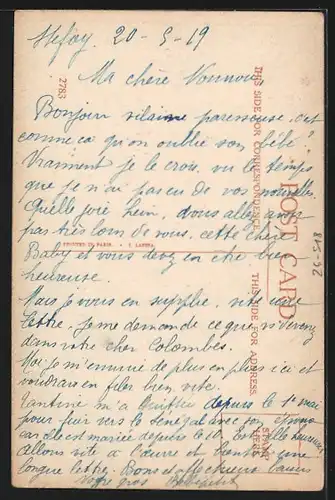 20-5-19
Ma chère Nounou
Bonjour vilaine paresseuse, est
comme ça qu'on oublie son bébé?
Vraiment je le crois vu le temps
que je n'ai pas eu de vos nouvelles
Quelle joie hein, vous allez avoir
pas très loin de vous, cette chère
Baby et vous devez en être bien
heureuse.
Mais je vous en supplie, vite une
lettre. Je me demande ce que vs devenez
dans votre cher Colombes.
Moi je m'ennuie de plus en plus ici et
voudrais en filer bien vite.
Tantine m'a quittée depuis le 1er mai
pour fuir vers le Sénégal avec son
car elle est mariée depuis le Est-elle
allons vite à l'œuvre et bientôt une
longue lettre. Bons et affectueux baisers
Votre gros
2783
THIS SIDE FOR CORRESPONDENCE
POST CARD
THIS SIDE FOR ADDRESS
PRINTED IN PARIS
STAMP
HERE